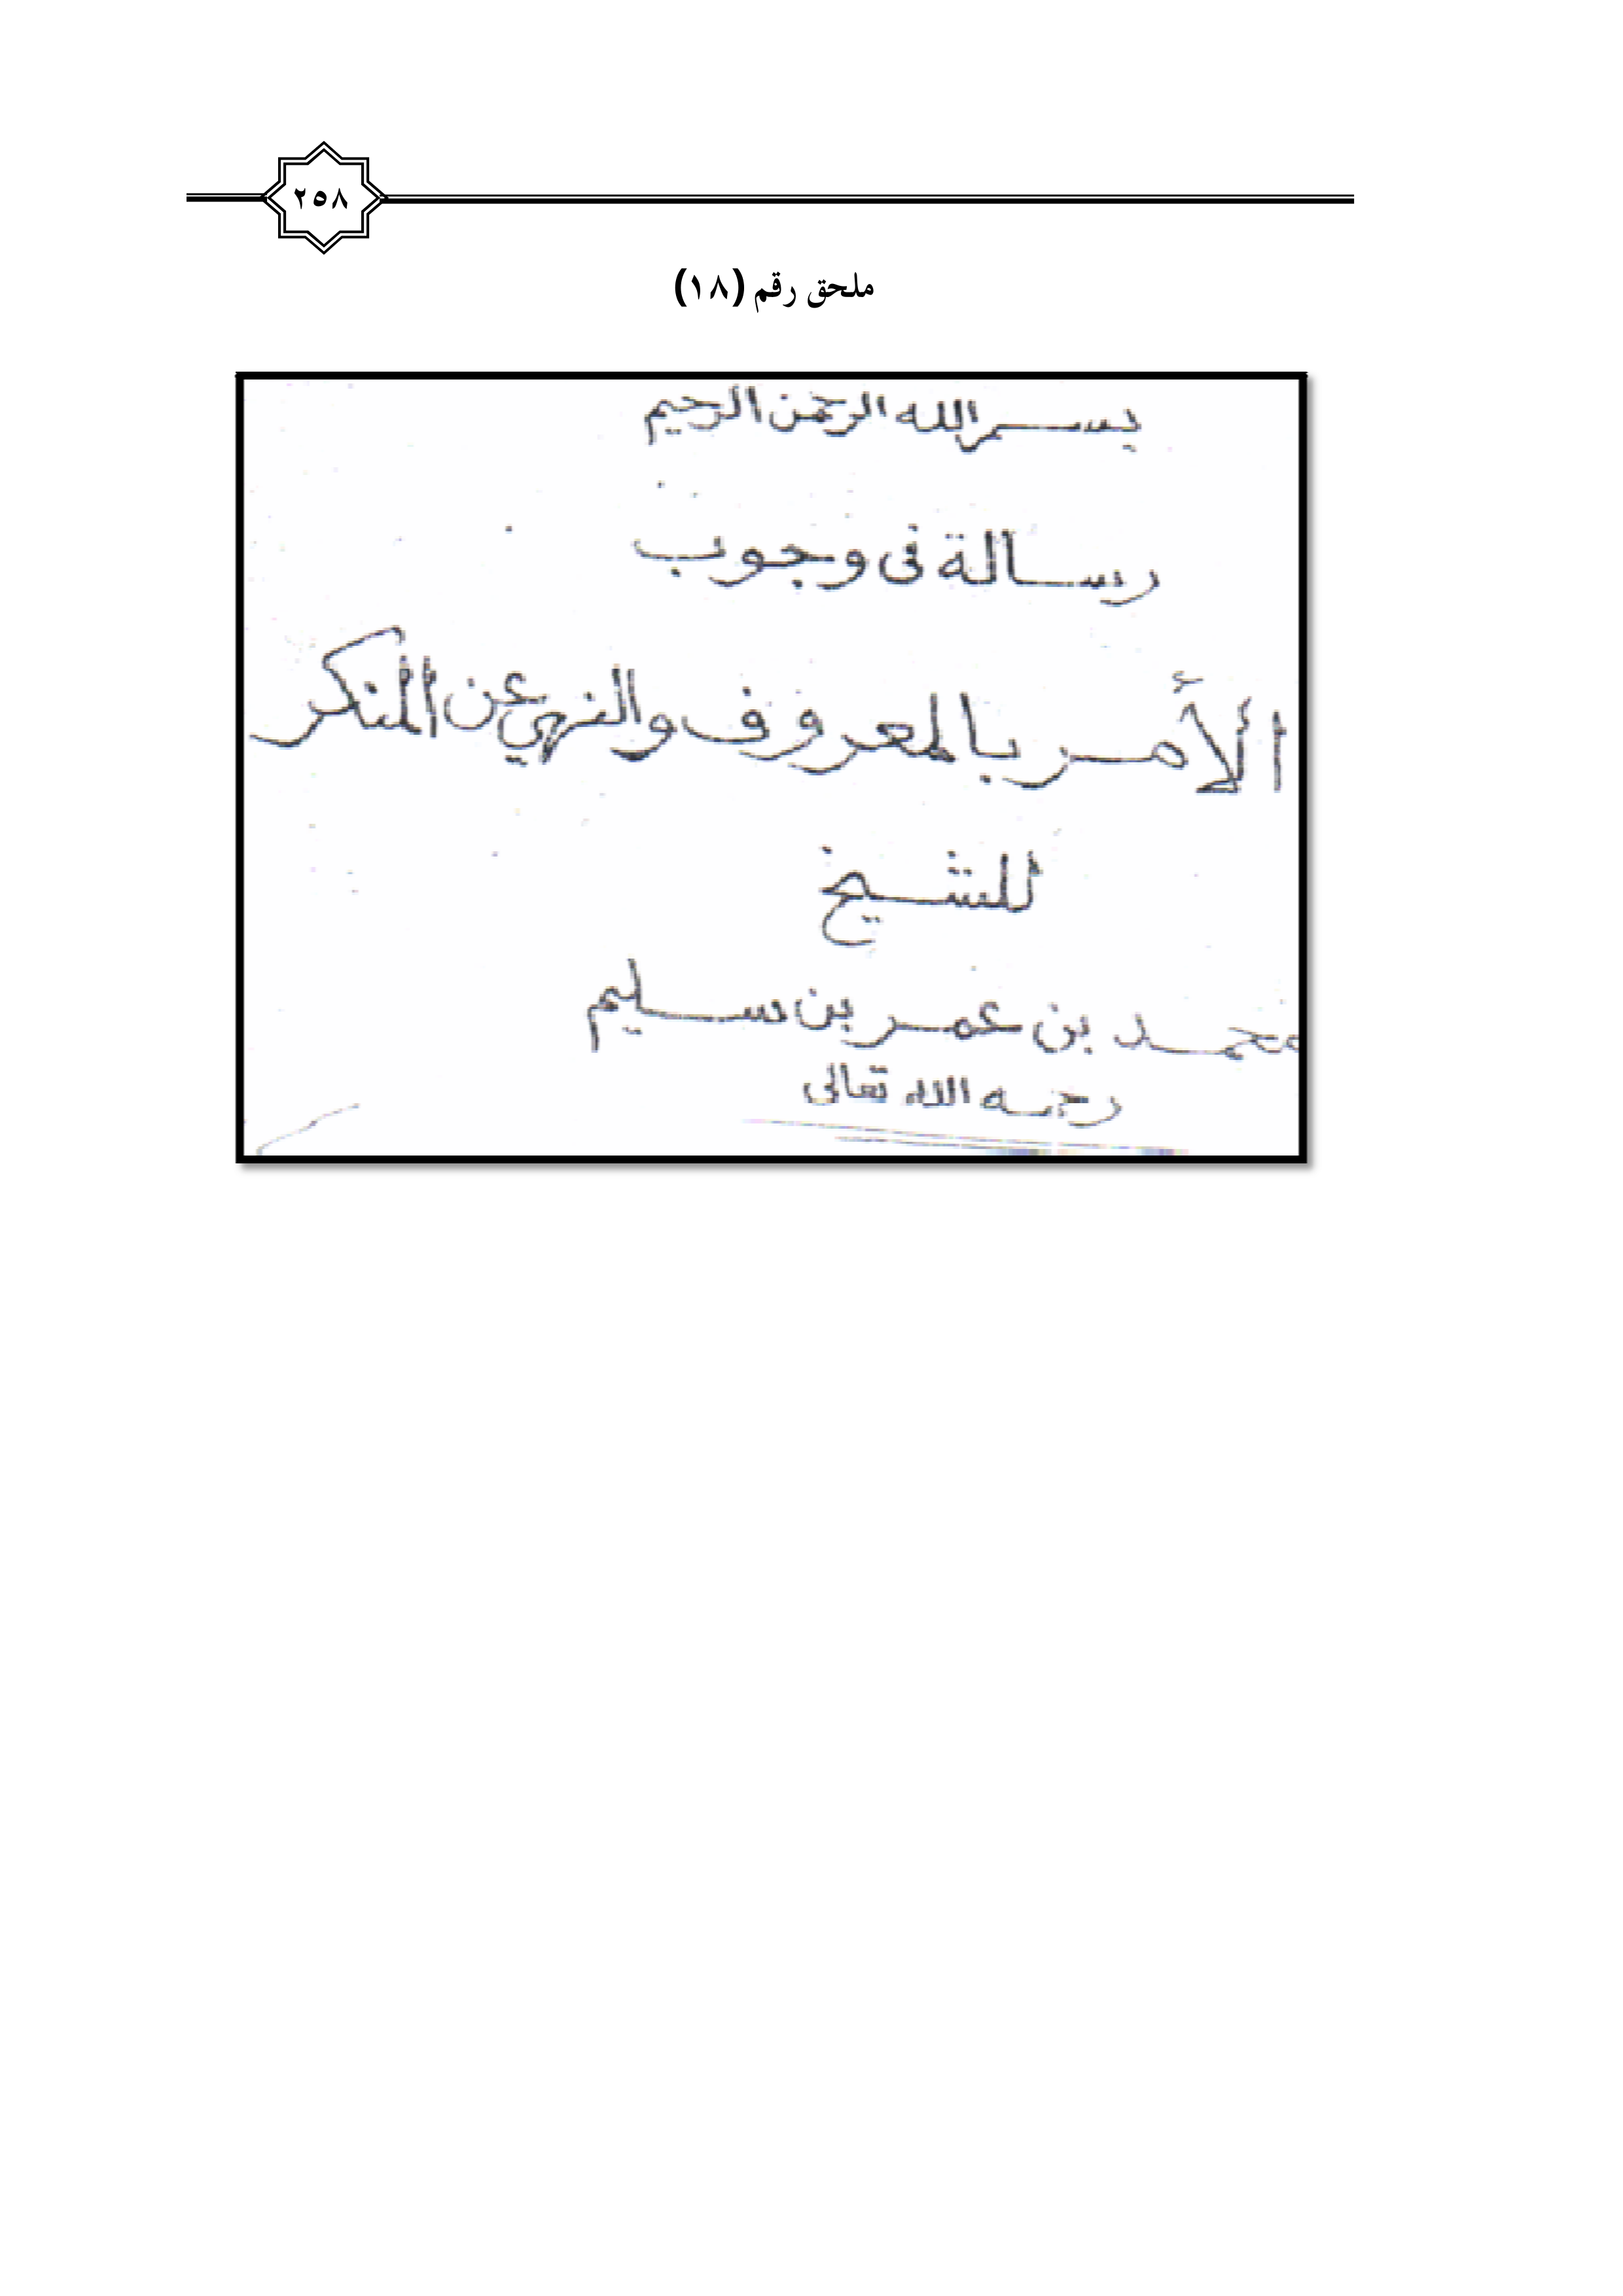 ٢٥٨
ملحق رقم (١٨)
بسم الله الرحمن الرحيم
رسالة فى وجوب
الأمر بالمعروف والنهي عن المنكر
للشيخ
محمد بن عمر بن سليم
رحمه الله تعالى